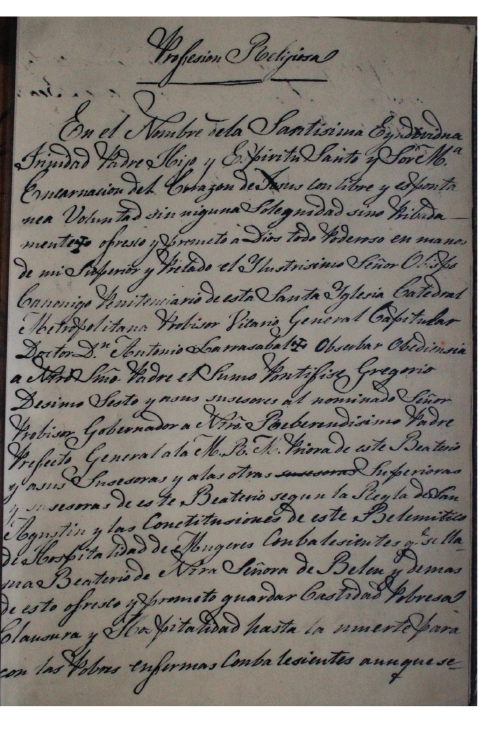 Profesion Religiosa
En el Nombre de la Santisima Eyndividua
Trinidad Padre Hijo y Espiritu Santo y Sor Mª
Encarnacion del Corazon de Jesus con libre y esponta
nea Voluntad sin niguna Solegnidad sino Pribada-
mente Yo ofresco y prometo a Dios todo Poderoso en manos
de mi Superior y Prelado el Ylustrisimo Señor Obispo
Canonigo Penitenciario de esta Santa Yglesia Catedral
Metropolitana Probisor Vicario General Capitular
Doctor Dn Antonio Larrasabal Yo Obserbar Obediensia
a Ntro Smo Padre el Sumo Pontifise Gregorio
Desimo Sesto y a sus susesores al nominado Señor
Probisor Gobernador a Ntro Reberendisimo Padre
Prefecto General a la M. R. M. Priora de este Beaterio
y a sus Susesoras y a las otras susesoras Superioras
y susesoras de este Beaterio segun la Regla de San
Agustin y las Constitusiones de este Belemitico
de Hospitalidad de Mugeres Conbalesientes q.e se lla-
ma Beaterio de Ntra Señora de Belen y demas
de esto ofresco y prometo guardar Castidad Pobresa
Clausura y Hospitalidad hasta la muerte para
con las Pobres enfermas Conbalesientes aunque se-